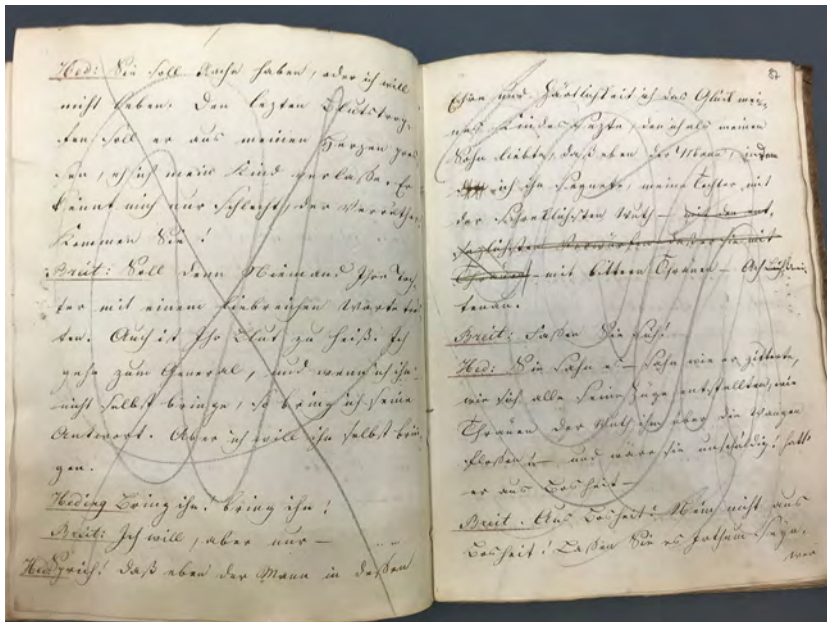 Hed: Sie soll Rache haben, oder ich will
nicht leben. Den lezten Blutstrop-
fen soll er aus meinen Herzen pres
sen, eh ich mein Kind verlaße. Er
kennt mich nur schlecht, der Verräther
Kommen Sie!
Breit: Soll denn Niemand Ihre Toch
ter mit einem liebreichen Worte trö
sten. Auch ist Ihr Blut zu heiß. Ich
gehe zum General, und wenn ich ihn
nicht selbst bringe, so bring ich seine
Antwort. Aber ich will ihn selbst brin
gen.
Heding Bring ihn! bring ihn!
Breit: Ich will, aber nur —
Hed: Sprich! daß eben der Mann in deßen
87
Ehre und Zärtlichkeit ich das Glück mei-
nes Kindes sezte, den ich als meinen
Sohn liebte, daß eben der Mann, indem
ich ihn segnete, meine Tochter, mit
der schreklichsten Wuth — mit den ent-
sezlichsten Vorwürfen daß er sie mit
Thränen — mit bittern Thränen — Ach
Breit: Faßen Sie sich!
Hed: Sie sahn es — sahn wie er zitterte,
wie sich alle seine Züge entstellten, wie
Thränen der Wuth ihm über die Wangen
floßen — und wäre sie unschuldig! hätte
er aus Bosheit —
Breit. Aus Bosheit! Nein nicht aus
Bosheit! Laßen Sie es Irthum seyn.
wer